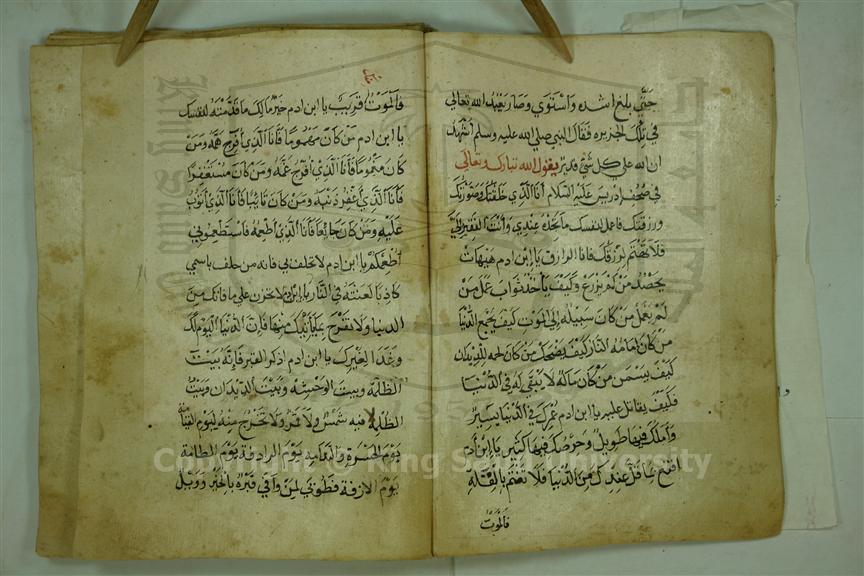 حتى بلغ اشده واستوي وصار يعبد الله تعالى
في تلك الجزيره فقال النبي صلي الله عليه وسلم اشهد
ان الله علي كل شيء قدير يقول الله تبارك وتعالى
في صحف ادريس عليه السلام انا الذي خلقتك وصورتك
ورزقتك فاعمل لنفسك ما تجده عندي وانت الفقير الي
فلا تهتم لرزقك فانا الرازق يا ابن ادم هيهات
يحصد من لم يزرع وكيف يأخذ ثواب عمل من
لم يعمل من كان سبيله إلى الموت كيف يجمع الدنيا
من كان امامه النار كيف يضحك من كان لحمه للديدان
كيف يسمن من كان ماله لا يبقي له في الدنيا
فكيف يقاتل عليه يا ابن ادم عمرك في الدنيا يسير
واملك فيها طويل وحرصك فيها كثير يا ابن ادم
اقنع بما قل عندك من الدنيا فلا تغتم بالقلة
فالموت
فالموت قريب يا ابن ادم خير مالك ما قدمته لنفسك
يا ابن ادم من كان مهموما فانا الذي أفرج همه ومن
كان مغموما فأنا الذي أفرج غمه ومن كان مستغفرا
فأنا الذي أغفر ذنبه ومن كان تائبا فأنا الذي أتوب
عليه ومن كان جائعا فأنا الذي أطعمه فاستطعموني
أطعمكم يا ابن ادم لا تحلف بي فانه من حلف باسمي
كاذبا لعنته في النار يا ابن ادم لا تحزن علي ما فاتك من
الدنيا ولا تفرح بما يأتيك منها فإن الدنيا اليوم لك
وغدا لغيرك يا ابن ادم اذكر القبر فإنه بيت
الظلمة وبيت الوحشه وبيت الديدان وبيت
الظلمه فيه شمس ولا قمر ولا تخرج منه ليوم القيامة
يوم الحسرة والندامه يوم الرادفة يوم الطامة
يوم الازفة فطوبي لمن وافي قبره بالخير وويل
Copyright © King Saud University